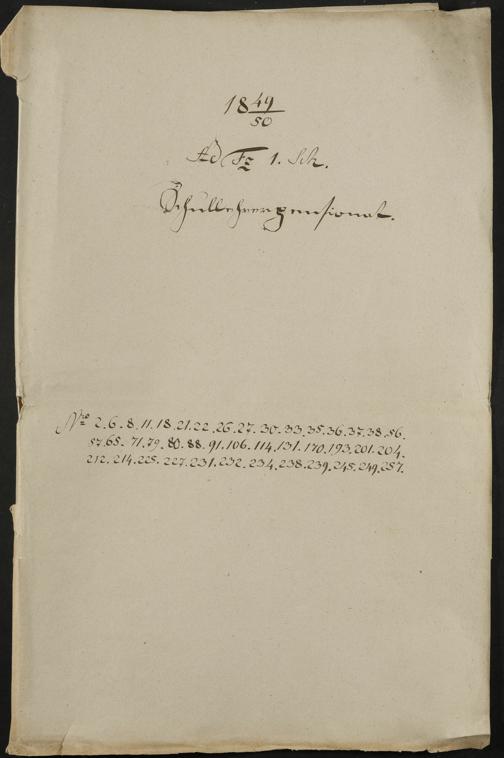 1849/50
Ad Fz 1. Sch.
Schullehrerpensionat.
Nro 2. 6. 8. 11. 18. 21. 22. 26. 27. 30. 33. 35. 36. 37. 38. 56.
57. 65. 71. 79. 80. 88. 91. 106. 114. 131. 170. 193. 201. 204.
212. 214. 225. 227. 231. 232. 234. 238. 239. 245. 249. 257.